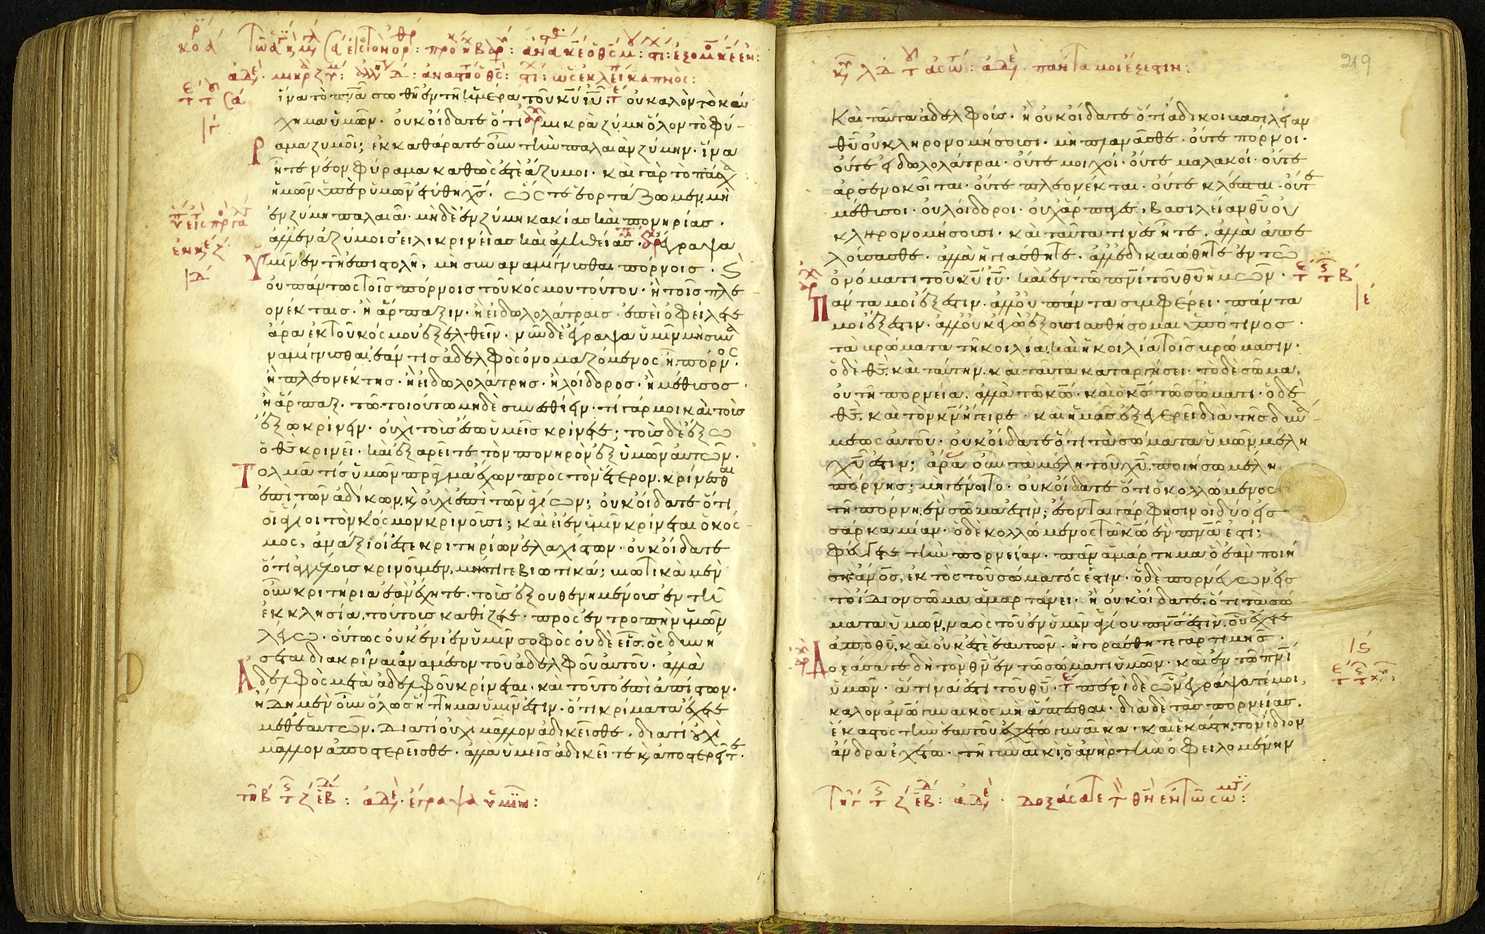 ἵνα τὸ πνα σωθῆ ἐν τῆ ἡμέρα τοῦ κυ ιυ. οὐ καλὸν τὸ καύ
χημα ὑμῶν. οὐκ οἴδατε ὅτι μικρὰ ζύμη ὅλον τὸ φύ
ραμα ζυμοῖ; ἐκκαθάρατε οὖν τὴν παλαιὰν ζύμην. ἵνα
ἦτε νέον φύραμα καθώς ἐστε ἄζυμοι. καὶ γὰρ τὸ πάσχα
ἡμῶν ὑπὲρ ἡμῶν ἐτύθη χς. ὥστε ἑορτάζωμεν μὴ
ἐν ζύμη παλαιᾶ. μηδὲ ἐν ζύμη κακίας καὶ πονηρίας.
ἀλλ' ἐν ἀζύμοις εἰλικρινείας καὶ ἀληθείας. ἔγραψα
ὑμῖν ἐν τῆ ἐπιστολῆ, μὴ συναναμίγνυσθαι πόρνοις.
οὐ πάντως τοῖς πόρνοις τοῦ κόσμου τούτου. ἢ τοῖς πλε
ονέκταις. ἢ ἅρπαξιν. ἢ εἰδωλολάτραις. ἐπεὶ ὀφείλετε
ἄρα ἐκ τοῦ κόσμου ἐξελθεῖν. νῦν δὲ ἔγραψα ὑμῖν μὴ συνα
ναμίγνυσθαι ἐάν τις ἀδελφὸς ὀνομαζόμενος ἢ πόρνος.
ἢ πλεονέκτης. ἢ εἰδωλολάτρης. ἢ λοίδορος. ἢ μέθυσος.
ἢ ἅρπαξ. τῶ τοιούτω μηδὲ συνεσθίειν. τί γάρ μοι καὶ τοὺς
ἔξω κρίνειν. οὐχὶ τοὺς ἔσω ὑμεῖς κρίνετε; τοὺς δὲ ἔξω
ὁ θς κρινεῖ. καὶ ἐξαρεῖτε τὸν πονηρὸν ἐξ ὑμῶν αὐτῶν.
Τολμᾶ τίς ὑμῶν πρᾶγμα ἔχων πρὸς τὸν ἕτερον. κρίνεσθαι
ἐπὶ τῶν ἀδίκων, καὶ οὐχὶ ἐπὶ τῶν ἁγίων; οὐκ οἴδατε ὅτι
οἱ ἅγιοι τὸν κόσμον κρινοῦσι; καὶ εἰ ἐν ὑμῖν κρίνεται ὁ κόσ
μος, ἀνάξιοί ἐστε κριτηρίων ἐλαχίστων. οὐκ οἴδατε
ὅτι ἀγγέλους κρινοῦμεν, μήτι γε βιωτικά; βιωτικὰ μὲν
οὖν κριτήρια ἐὰν ἔχητε. τοὺς ἐξουθενημένους ἐν τῆ
ἐκκλησία, τούτους καθίζετε. πρὸς ἐντροπὴν ὑμῶν
λέγω. οὕτως οὐκ ἔνι ἐν ὑμῖν σοφὸς οὐδὲ εἷς. ὃς δυνή
σεται διακρῖναι ἀναμέσον τοῦ ἀδελφοῦ αὐτοῦ. ἀλλὰ
ἀδελφὸς μετὰ ἀδελφοῦ κρίνεται. καὶ τοῦτο ἐπὶ ἀπίστων.
ἤδη μὲν οὖν ὅλως ἥττημα ὑμῖν ἐστιν. ὅτι κρίματα ἔχετε
μεθ' ἑαυτῶν. διατί οὐχὶ μᾶλλον ἀδικεῖσθε. διατί οὐχὶ
μᾶλλον ἀποστερεῖσθε. ἀλλὰ ὑμεῖς ἀδικεῖτε καὶ ἀποστερεῖτε.
ἔγραψα ὑμῖν:
πάντα μοι ἔξεστιν:
219
Καὶ ταῦτα ἀδελφούς. ἢ οὐκ οἴδατε ὅτι ἄδικοι βασιλείαν
θυ οὐ κληρονομήσουσι. μὴ πλανᾶσθε. οὔτε πόρνοι.
οὔτε εἰδωλολάτραι. οὔτε μοιχοί. οὔτε μαλακοί. οὔτε
ἀρσενοκοῖται. οὔτε πλεονέκται. οὔτε κλέπται. οὔτε
μέθυσοι. οὐ λοίδοροι. οὐχ ἅρπαγες, βασιλείαν θυ οὐ
κληρονομήσουσι. καὶ ταῦτά τινες ἦτε. ἀλλὰ ἀπε
λούσασθε. ἀλλὰ ἡγιάσθητε. ἀλλ' ἐδικαιώθητε ἐν τῶ
ὀνόματι τοῦ κυ ιυ. καὶ ἐν τῶ πνι τοῦ θυ ἡμῶν.
Πάντα μοι ἔξεστιν. ἀλλ' οὐ πάντα συμφέρει. πάντα
μοι ἔξεστιν. ἀλλ' οὐκ ἐγὼ ἐξουσιασθήσομαι ὑπό τινος.
τὰ βρώματα τῆ κοιλία, καὶ ἡ κοιλία τοῖς βρώμασιν.
ὁ δὲ θς. καὶ ταύτην. καὶ ταῦτα καταργήσει. τὸ δὲ σῶμα,
οὐ τῆ πορνεία. ἀλλὰ τῶ κω. καὶ ὁ κς τῶ σώματι. ὁ δὲ
θς. καὶ τὸν κν ἤγειρε. καὶ ἡμᾶς ἐξεγερεῖ διὰ τῆς δυνά
μεως αὐτοῦ. οὐκ οἴδατε ὅτι τὰ σώματα ὑμῶν μέλη
χυ ἐστιν; ἄρας οὖν τὰ μέλη τοῦ χυ, ποιήσω μέλη
πόρνης; μὴ γένοιτο. οὐκ οἴδατε ὅτι ὁ κολλώμενος
τῆ πόρνη, ἓν σῶμά ἐστιν; ἔσονται γάρ φησιν οἱ δύο εἰς
σάρκα μίαν. ὁ δὲ κολλώμενος τῶ κω ἓν πνα ἐστι;
φεύγετε τὴν πορνείαν. πᾶν ἁμάρτημα ὃ ἐὰν ποιή
ση ἀνος, ἐκτὸς τοῦ σώματός ἐστιν. ὁ δὲ πορνεύων εἰς
τὸ ἴδιον σῶμα ἁμαρτάνει. ἢ οὐκ οἴδατε, ὅτι τὰ σώ
ματα ὑμῶν, ναὸς τοῦ ἐν ὑμῖν ἁγίου πνς ἐστιν, οὗ ἔχετε
ἀπὸ θυ, καὶ οὐκ ἐστὲ ἑαυτῶν. ἠγοράσθητε γὰρ τιμῆς.
Δοξάσατε δὴ τὸν θν ἐν τῶ σώματι ὑμῶν. καὶ ἐν τῶ πνι
ὑμῶν. ἅτινά ἐστι τοῦ θυ. περὶ δὲ ὧν ἐγράψατέ μοι,
καλὸν ἀνω γυναικὸς μὴ ἅπτεσθαι. διὰ δὲ τὰς πορνείας.
ἕκαστος τὴν ἑαυτοῦ ἐχέτω γυναῖκα. καὶ ἑκάστη τὸν ἴδιον
ἄνδρα ἐχέτω. τῆ γυναικὶ ὁ ἀνὴρ τὴν ὀφειλομένην